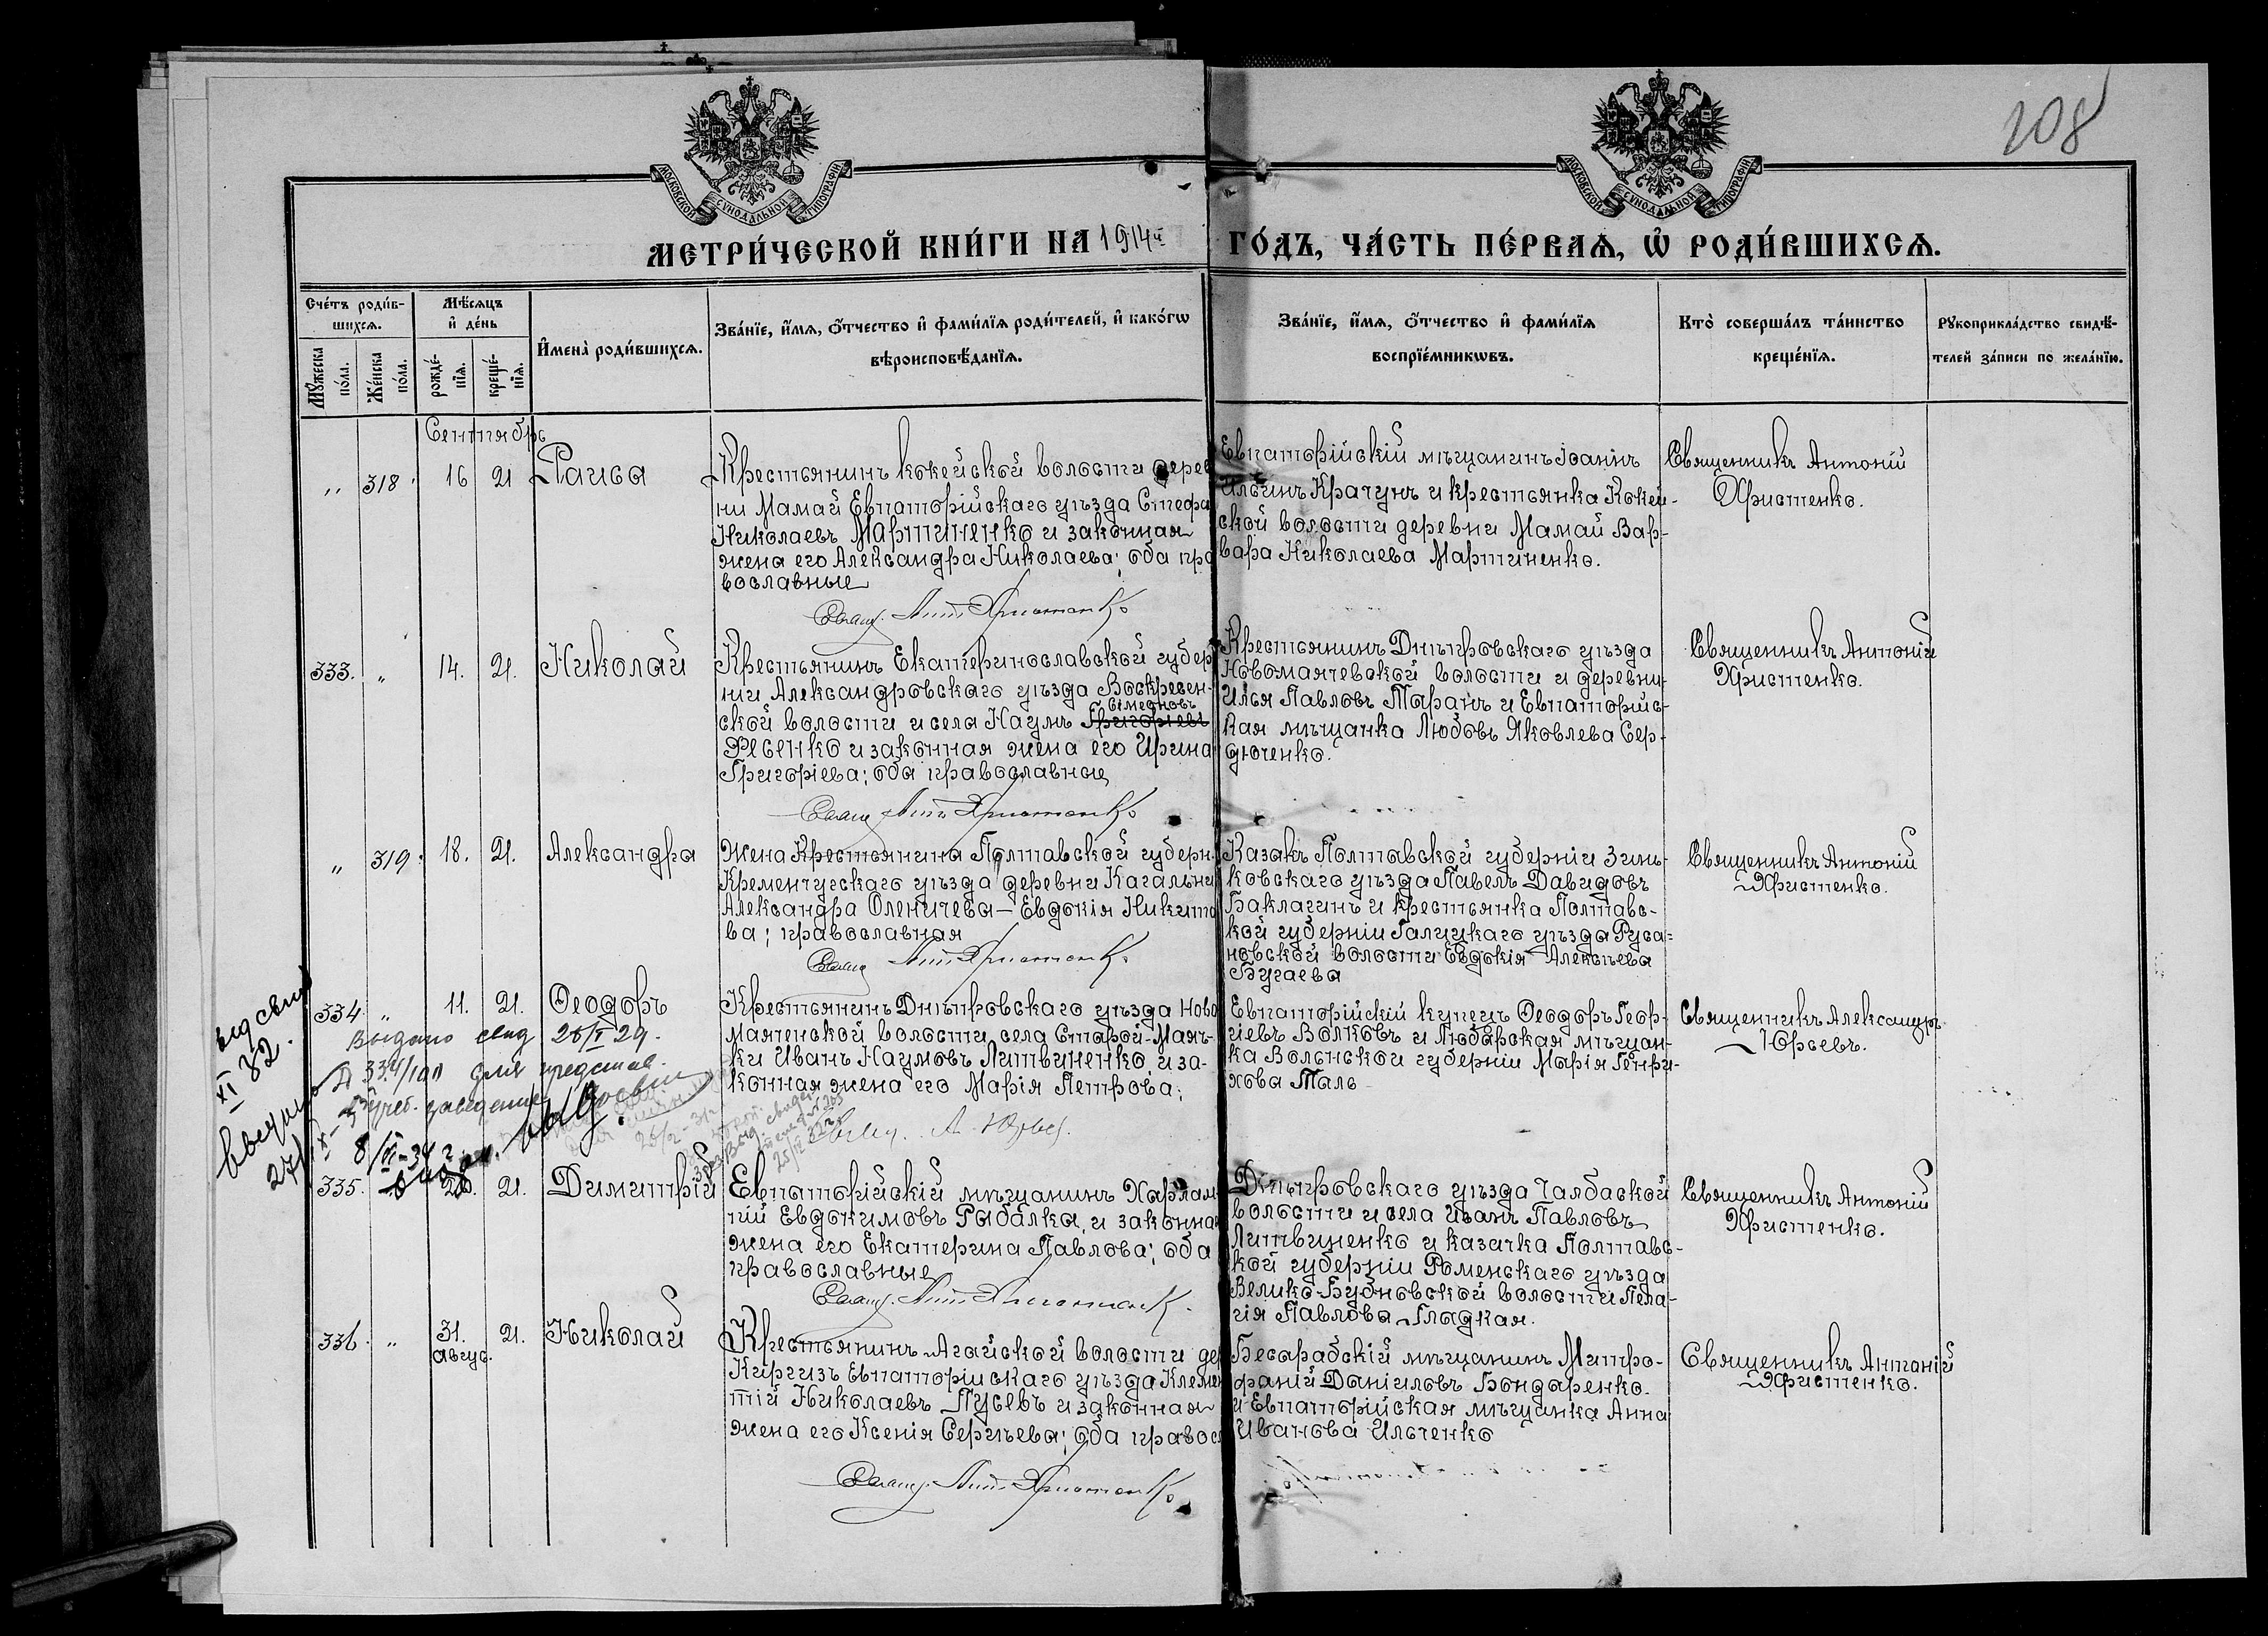 108
МОСКОВСКОЙ СѴНОДАЛЬНОЙ ТИПОГРАФІИ.
МОСКОВСКОЙ СѴНОДАЛЬНОЙ ТИПОГРАФІИ.
МЕТРИ́ЧЕСКОЙ КНИ́ГИ НА 1914й ГО́ДЪ, ЧА́СТЬ ПЕ́РВАѦ, Ѡ҆ РОДИ́ВШИХСѦ.
Сче́тъ роди́в-
шихсѧ.
Мꙋ́жеска
по́ла.
Же́нска
по́ла.
Мѣ́сѧцъ
и҆ де́нь
рожде́-
нїѧ.
креще́-
нїѧ.
И҆мена̀ роди́вшихсѧ.
Зва́нїе, и҆́мѧ, ѻ҆́тчество и҆ фами́лїѧ роди́телей, и҆ како́гѡ
вѣроисповѣ́данїѧ.
Зва́нїе, и҆́мѧ, ѻ҆́тчество и҆ фами́лїѧ
воспрїе́мникѡвъ.
Кто̀ соверша́лъ та́инство
креще́нїѧ.
Рꙋкоприкла́дство свидѣ́-
телей за́писи по жела́нїю.
Сентябрь
" 318. 16 21 Раиса
Крестьянинъ Кокейской волости дерев
ни Мамай Евпаторійскаго уѣзда Стефа
Николаевъ Мартиненко и законная
жена его Александра Николаева; оба пра
вославные
Свящ. Ант. Христенко
Евпаторійскій мѣщанинъ Іоаннъ
Ильинъ Крачунъ и крестьянка Кокей-
ской волости деревни Мамай Вар-
вара Николаева Мартиненко.
Священникъ Антоній
Христенко.
333. " 14. 21. Николай
Крестьянинъ Екатеринославской губер
ніи Александровскаго уѣзда Воскресен-
Симеоновъ
ской волости и села Наумъ Григоріевъ
Фесенко и законная жена его Ирина
Григоріева; оба православные
Свящ Ант. Христенко
Крестьянинъ Днѣпровскаго уѣзда
Новомаячевской волости и деревни
Илья Павловъ Таранъ и Евпаторійс-
кая мѣщанка Любовь Яковлева Сер-
дюченко.
Священникъ Антоній
Христенко.
" 319. 18. 21. Александра
Жена Крестьянина Полтавской губерн.
Кременчугскаго уѣзда деревни Кагальни
Александра Оленичева — Евдокія Никита
ва; православная
Свящ Ант. Христенко
Казакъ Полтавской губерніи Зинь-
ковскаго уѣзда Павелъ Давидовъ
Баклагинъ и крестьянка Полтавс-
кой губерніи Галицкаго уѣзда Руса-
новской волости Евдокія Алексѣева
Бугаева
Священникъ Антоній
Христенко.
334. " 11. 21. Ѳеодоръ
Крестьянинъ Днѣпровскаго уѣзда Ново
маяченской волости села Старой-Маяч-
ки Иванъ Наумовъ Литвиненко, и за-
конная жена его Марія Петрова;
Свящ. А. Юрьев.
Евпаторійскій купецъ Ѳеодоръ Геор-
гіевъ Волковъ и Любарская мѣщан-
ка Волынской губерніи Марія Генри-
хова Таль
Священникъ Александръ
Юрьевъ.
Выдано свид 29.
учеб. заведение
8/VI-34 г
335. 21. Димитрій
Евпаторійскій мѣщанинъ Харлам
пій Евдокимовъ Рыбалка, и законная
жена его Екатерина Павлова; оба
православные
Свящ. Ант. Христенко.
Днѣпровскаго уѣзда Чалбаской
волости и села Иванъ Павловъ
Литвиненко и казачка Полтавс-
кой губерніи Роменскаго уѣзда
Велико-Бубновской волости Пела-
гія Павлова Гладкая.
Священникъ Антоній
Христенко.
336. " 31. 21. Николай
авгус.
Крестьянинъ Агайской волости дер
Киргизъ Евпаторійскаго уѣзда Клемен
тій Николаевъ Гусевъ и законная
жена его Ксенія Сергѣева; оба правосл
Свящ. Ант. Христенко.
Бесарабскій мѣщанинъ Митро-
фаній Даніиловъ Бондаренко
и Евпаторійская мѣщанка Анна
Иванова Ильченко
Священникъ Антоній
Христенко.